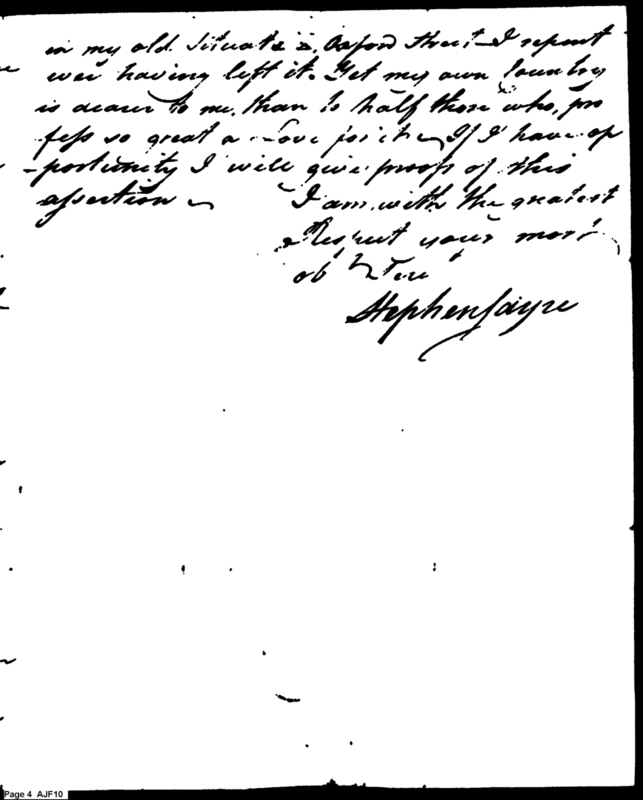 in my old Situate in Oxford Street—I repent
ever having left it. Yet my own Country
is dearer to me, than to half those who, pro
fess so great a Love for it— If I have op
-portunity I will give proofs of this
assertion— I am, with the greatest
Respect your most
obt Ser t
Stephen Sayre
Page 4 AJF10